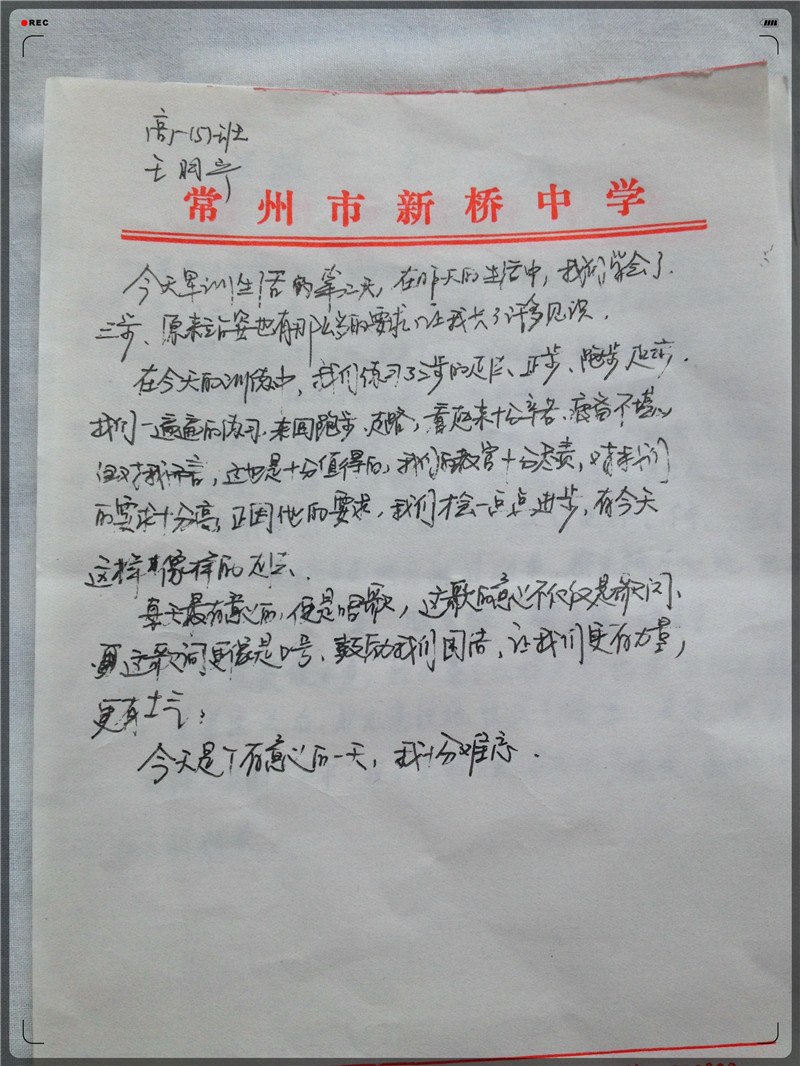 REC
高一(5)班
王
常州市新桥中学
今天军训生活的第二天，在昨天的生活中，我们学会了
三步、原来站姿也有那么多的要求，让我长了许多见识．
在今天的训练中，我们练习了三步的走法、正步、跑步、走步．
我们一遍遍的练习、来回跑步、走路，看起来十分辛苦、疲惫不堪，
但对我而言，这也是十分值得的，我们的教官十分尽责，对我们
的要求十分高，正因他的要求，我们才会一点点进步，有今天
这样像样的走法．
每天最有意心的，便是唱歌，这歌的意心不仅仅是歌词、
这歌词更像是口号、鼓励我们团结，让我们更有力量，
更有士气；
今天是个有意心的一天，我十分难忘．